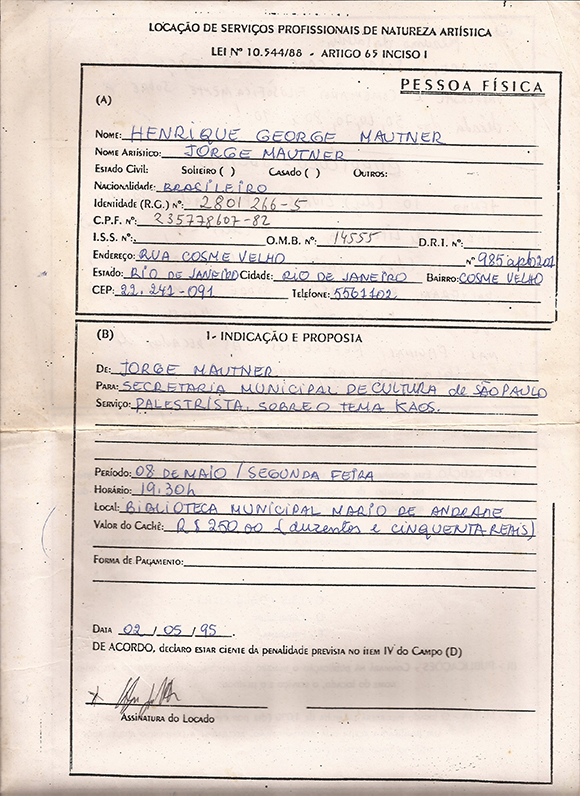 LOCAÇÃO DE SERVIÇOS PROFISSIONAIS DE NATUREZA ARTÍSTICA
LEI Nº 10.544/88 - ARTIGO 65 INCISO I
PESSOA FÍSICA
(A)
NOME: HENRIQUE GEORGE MAUTNER
NOME ARTÍSTICO: JORGE MAUTNER
ESTADO CIVIL: SOLTEIRO ( ) CASADO ( ) OUTROS:
NACIONALIDADE: BRASILEIRO
IDENTIDADE (R.G.) Nº: 2801 266-5
C.P.F. Nº: 235778607-82
I.S.S. Nº: O.M.B. Nº: 14555 D.R.I. Nº:
ENDEREÇO: RUA COSME VELHO Nº 985 apto 201
ESTADO: RIO DE JANEIRO CIDADE: RIO DE JANEIRO BAIRRO: COSME VELHO
CEP: 22.241-091 TELEFONE: 5561102
(B) 1- INDICAÇÃO E PROPOSTA
DE: JORGE MAUTNER
PARA: SECRETARIA MUNICIPAL DE CULTURA de SÃO PAULO
SERVIÇO: PALESTRISTA. SOBRE O TEMA KAOS.
PERÍODO: 08 DE MAIO / SEGUNDA FEIRA
HORÁRIO: 19:30h
LOCAL: BIBLIOTECA MUNICIPAL MARIO DE ANDRADE
VALOR DO CACHÊ: R$ 250,00 (duzentos e CINQUENTA REAIS)
FORMA DE PAGAMENTO:
DATA 02 / 05 / 95.
DE ACORDO, DECLARO ESTAR CIENTE DA PENALIDADE PREVISTA NO ITEM IV DO CAMPO (D)
ASSINATURA DO LOCADO